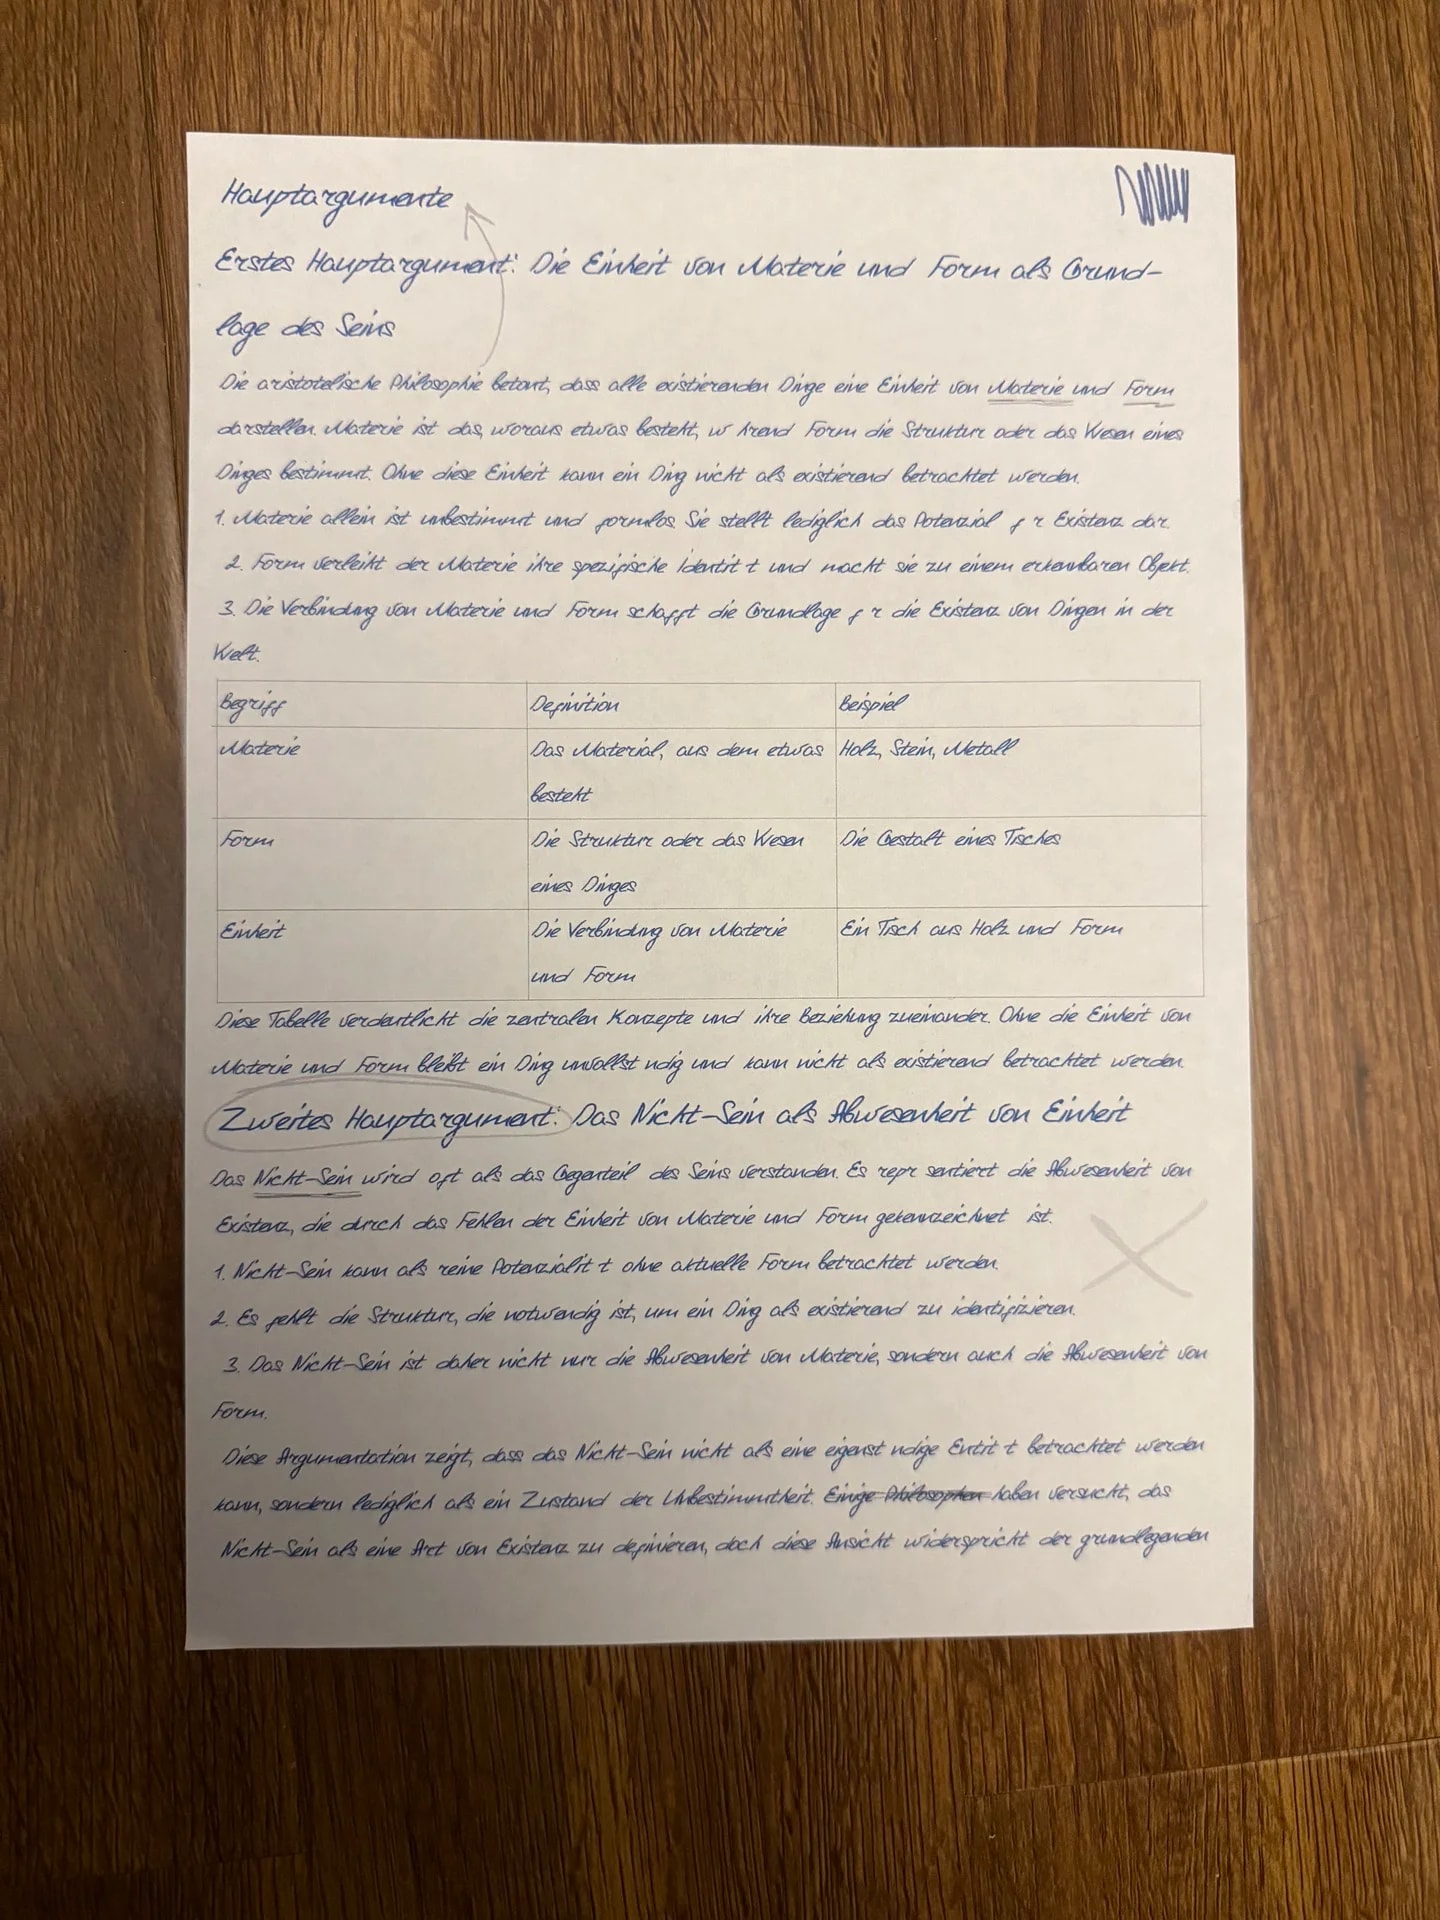 Hauptargumente
Erstes Hauptargument: Die Einheit von Materie und Form als Grund-
lage des Seins
Die aristotelische Philosophie betont, dass alle existierenden Dinge eine Einheit von Materie und Form
darstellen. Materie ist das, woraus etwas besteht, w hrend Form die Struktur oder das Wesen eines
Dinges bestimmt. Ohne diese Einheit kann ein Ding nicht als existierend betrachtet werden.
1. Materie allein ist unbestimmt und formlos. Sie stellt lediglich das Potenzial f r Existenz dar.
2. Form verleiht der Materie ihre spezifische Identit t und macht sie zu einem erkennbaren Objekt.
3. Die Verbindung von Materie und Form schafft die Grundlage f r die Existenz von Dingen in der
Welt.
Begriff Definition Beispiel
Materie Das Material, aus dem etwas Holz, Stein, Metall
besteht
Form Die Struktur oder das Wesen Die Gestalt eines Tisches
eines Dinges
Einheit Die Verbindung von Materie Ein Tisch aus Holz und Form
und Form
Diese Tabelle verdeutlicht die zentralen Konzepte und ihre Beziehung zueinander. Ohne die Einheit von
Materie und Form bleibt ein Ding unvollst ndig und kann nicht als existierend betrachtet werden.
Zweites Hauptargument: Das Nicht-Sein als Abwesenheit von Einheit
Das Nicht-Sein wird oft als das Gegenteil des Seins verstanden. Es repr sentiert die Abwesenheit von
Existenz, die durch das Fehlen der Einheit von Materie und Form gekennzeichnet ist.
1. Nicht-Sein kann als reine Potenzialit t ohne aktuelle Form betrachtet werden.
2. Es fehlt die Struktur, die notwendig ist, um ein Ding als existierend zu identifizieren.
3. Das Nicht-Sein ist daher nicht nur die Abwesenheit von Materie, sondern auch die Abwesenheit von
Form.
Diese Argumentation zeigt, dass das Nicht-Sein nicht als eine eigenst ndige Entit t betrachtet werden
kann, sondern lediglich als ein Zustand der Unbestimmtheit. Einige Philosophen haben versucht, das
Nicht-Sein als eine Art von Existenz zu definieren, doch diese Ansicht widerspricht der grundlegenden